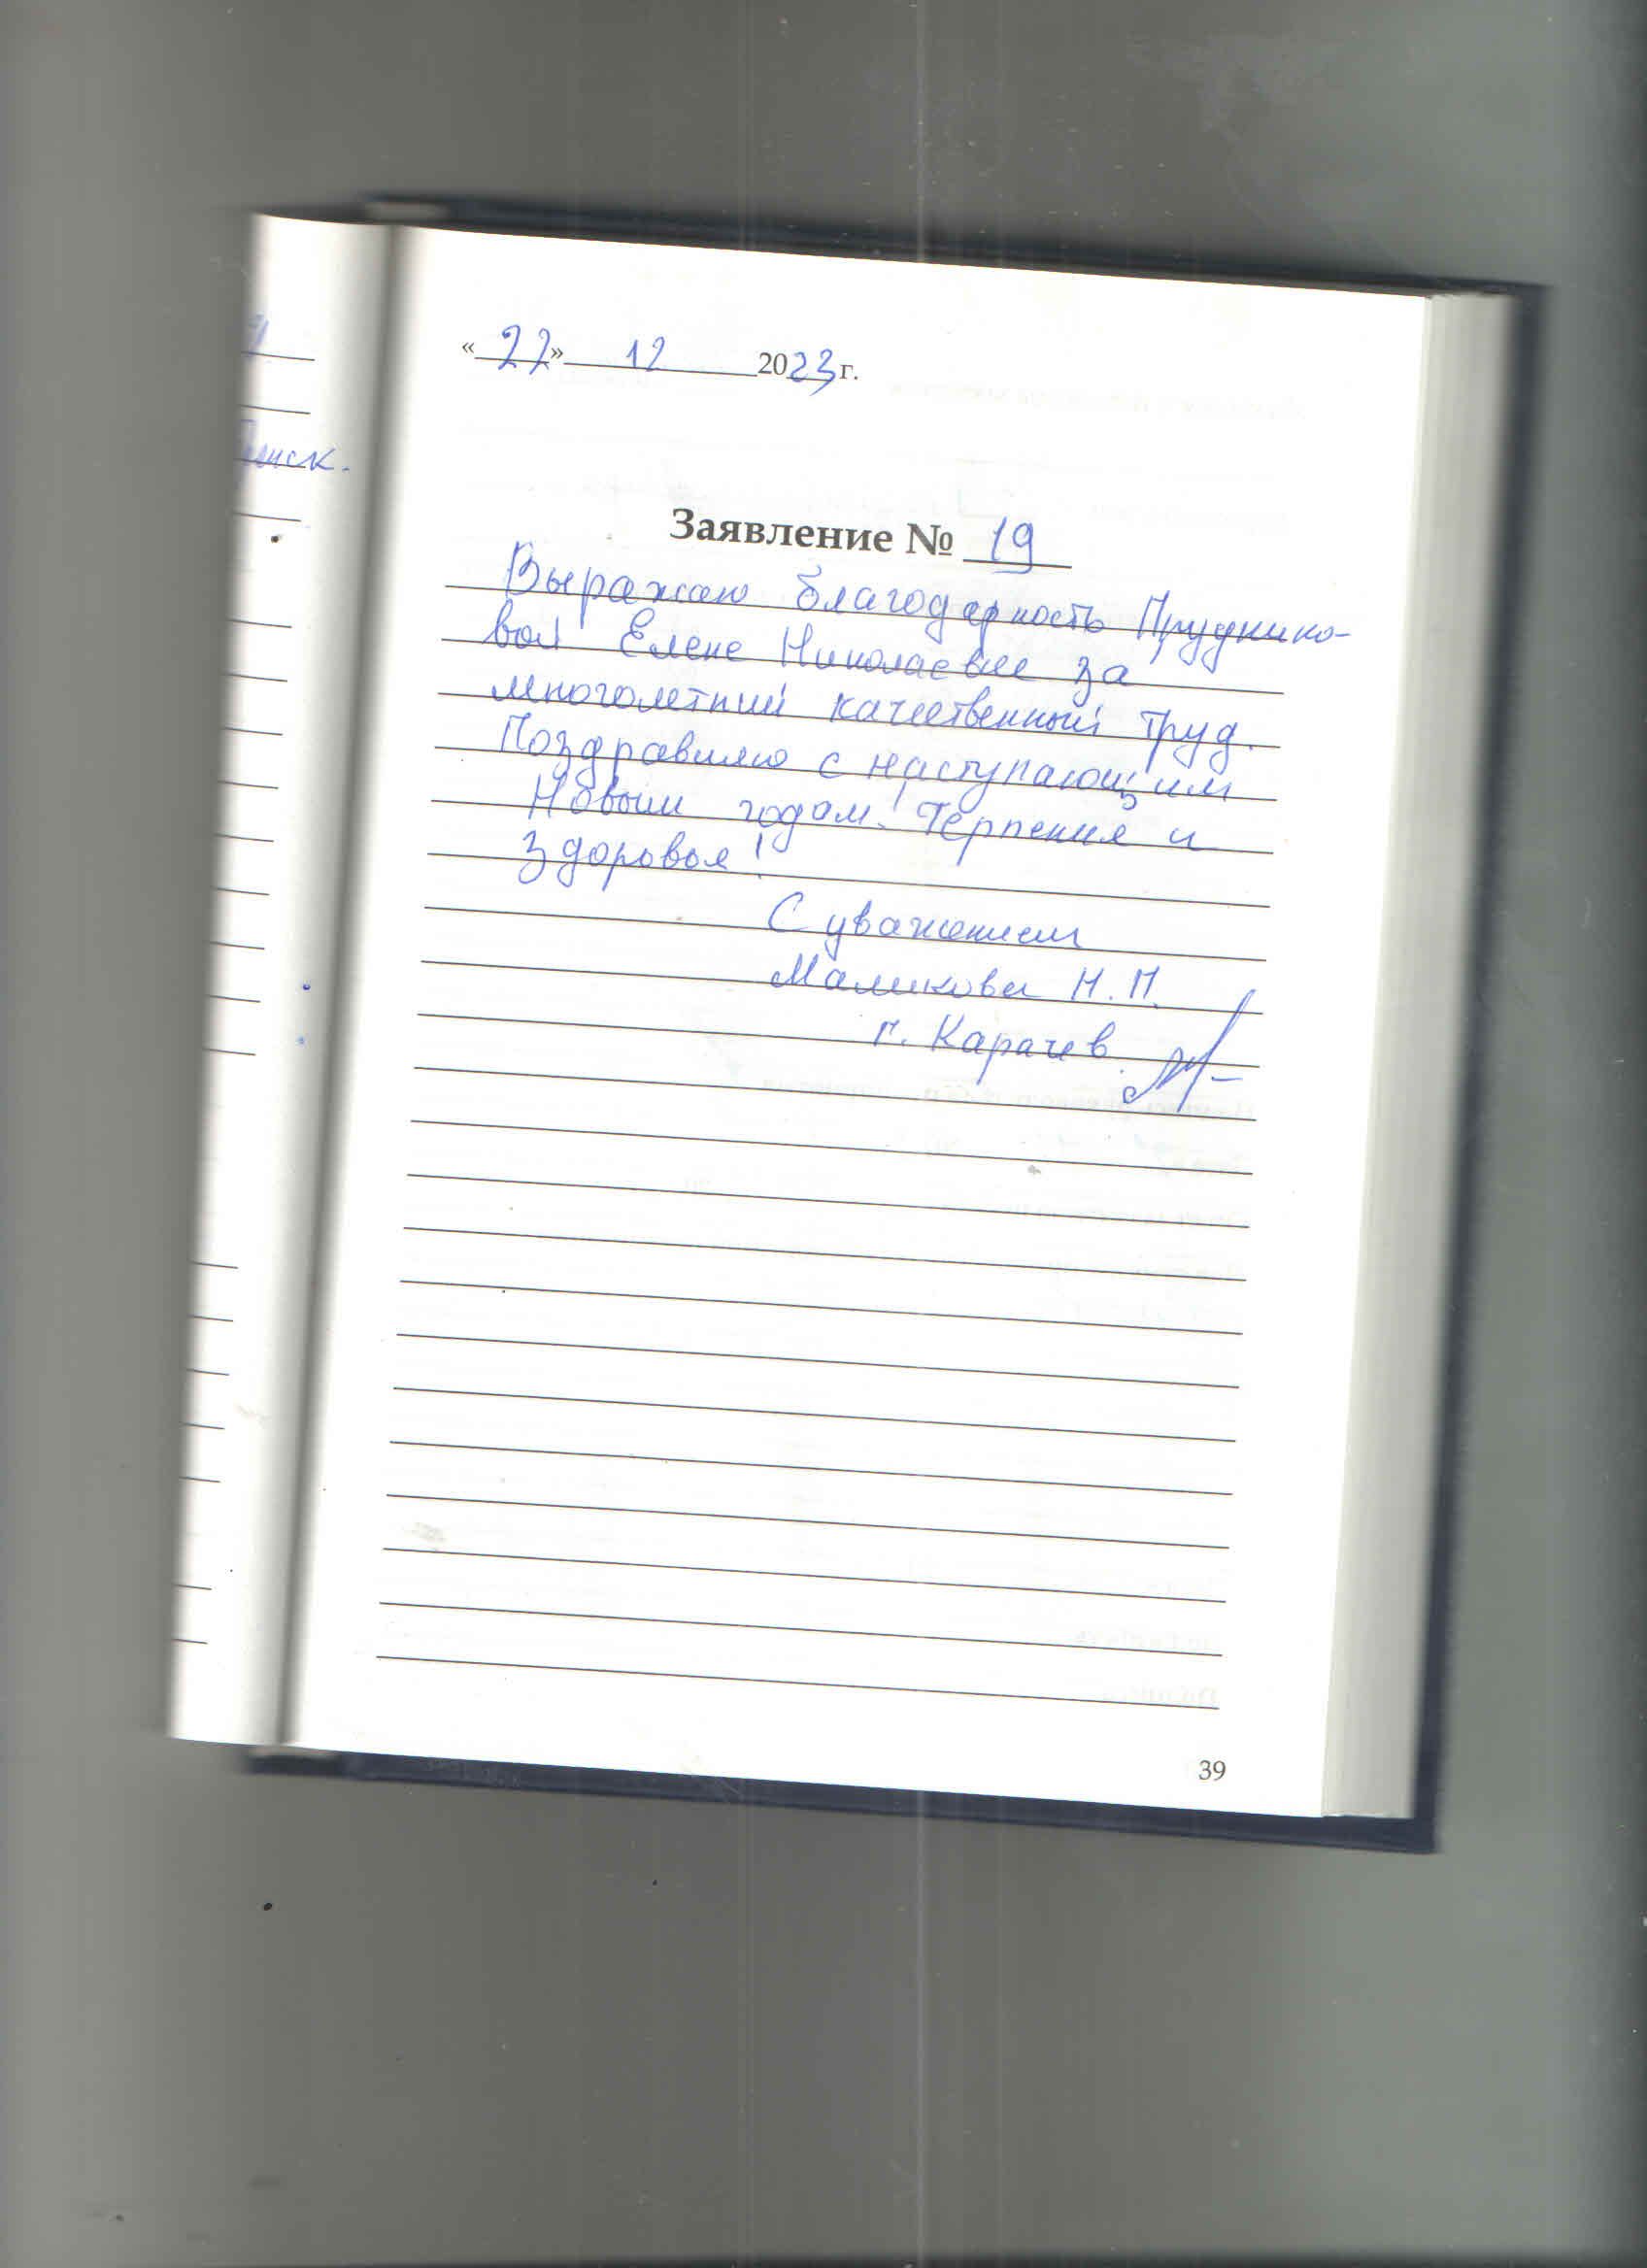 «22» 12 2023 г.
Заявление № 19
Выражаю благодарность Пруднико-
вой Елене Николаевне за
многолетний качественный труд.
Поздравляю с наступающим
Новым годом! Терпения и
здоровья!
С уважением
Маликова Н. П.
г. Карачев
39